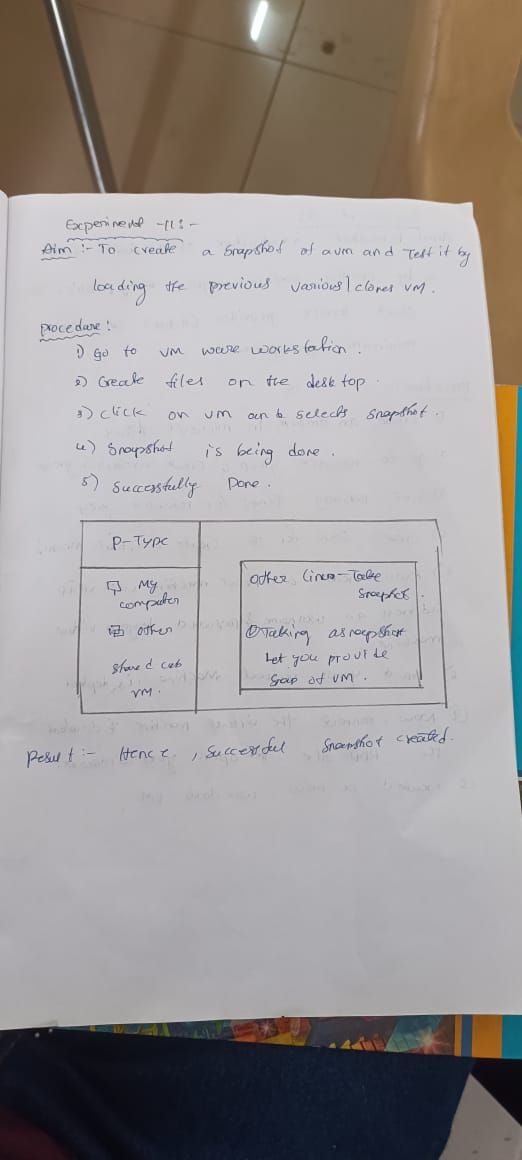 Experiment -11: -
Aim :- To create a Snapshot of a vm and Test it by
loading the previous various/clones VM.
procedure:
1) Go to VM ware workstation.
2) Create files on the desktop.
3) click on vm and selects snapshot.
4) Snapshot is being done.
5) Successfully Done.
P-Type
My
computer
other
shared
VM.
other Linux-Take
Snapshot.
Taking a snapshot
Let you provide
of VM.
Result :- Hence, Successful Snapshot created.